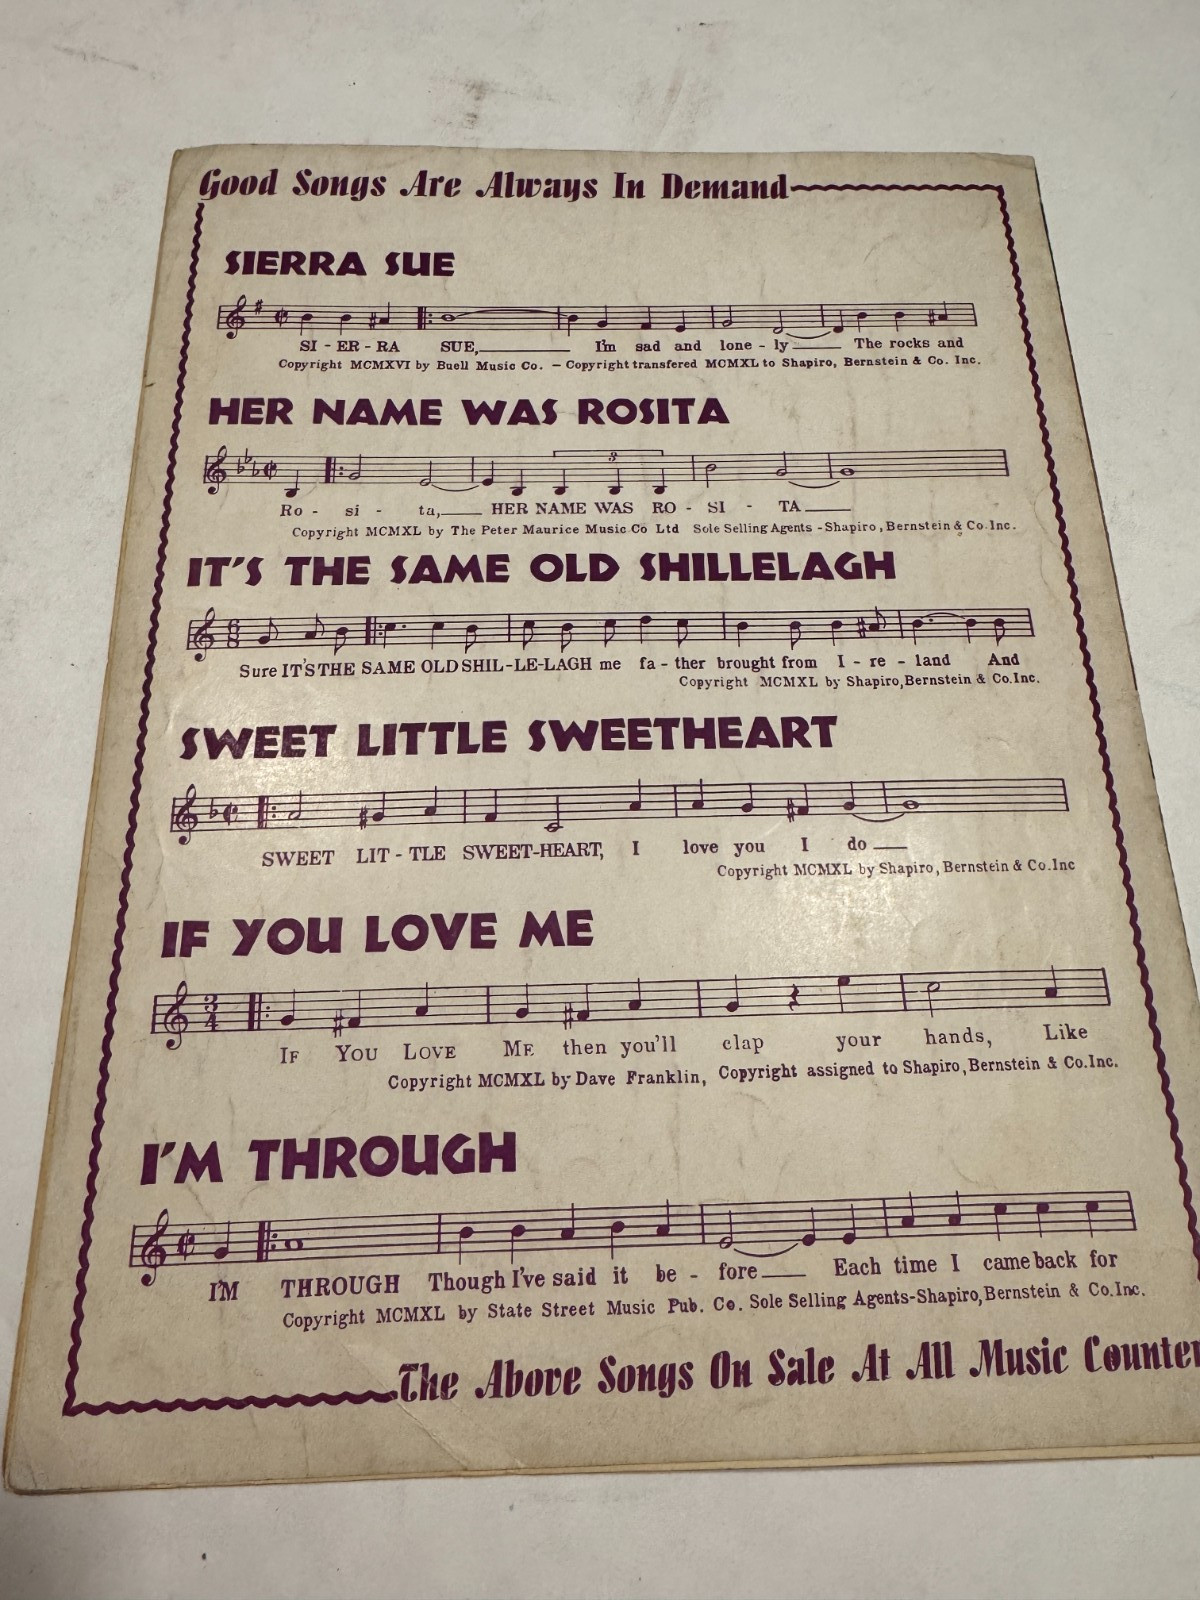 Good Songs Are Always In Demand
SIERRA SUE
SI - ER - RA SUE, I'm sad and lone - ly The rocks and
Copyright MCMXVI by Buell Music Co. – Copyright transfered MCMXL to Shapiro, Bernstein & Co. Inc.
HER NAME WAS ROSITA
3
Ro - si - ta, HER NAME WAS RO - SI - TA
Copyright MCMXL by The Peter Maurice Music Co Ltd Sole Selling Agents - Shapiro, Bernstein & Co. Inc.
IT'S THE SAME OLD SHILLELAGH
6
8
Sure IT'S THE SAME OLD SHIL-LE-LAGH me fa - ther brought from I - re - land And
Copyright MCMXL by Shapiro, Bernstein & Co. Inc.
SWEET LITTLE SWEETHEART
SWEET LIT - TLE SWEET-HEART, I love you I do
Copyright MCMXL by Shapiro, Bernstein & Co. Inc
IF YOU LOVE ME
3
4
IF YOU LOVE ME then you'll clap your hands, Like
Copyright MCMXL by Dave Franklin, Copyright assigned to Shapiro, Bernstein & Co. Inc.
I'M THROUGH
I'M THROUGH Though I've said it be - fore Each time I came back for
Copyright MCMXL by State Street Music Pub. Co. Sole Selling Agents-Shapiro, Bernstein & Co. Inc.
The Above Songs On Sale At All Music Counter